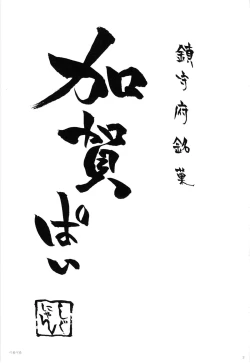 鎮守府銘菓
加賀
ぱい
しぐ
にゃん